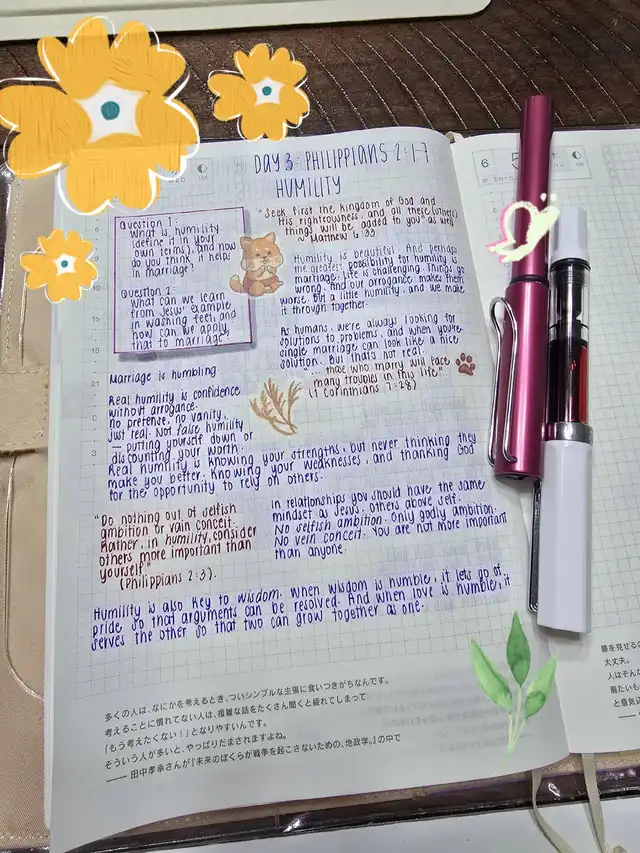 DAY 3: PHILIPPIANS 2:1-7
HUMILITY
Question 1:
what is humility
(define it in your
own terms). And how
do you think it helps
in marriage?
Question 2:
what can we learn
from Jesus' example
in washing feet, and
how can we apply
that to marriage?
"Seek first the kingdom of God and
His righteousness, and all these (others)
things will be added to you" as well
~ Matthew 6:33
Humility is beautiful. And perhaps
the greatest possibility for humility is
marriage. Life is challenging. Things go
wrong. And our arrogance makes them
worse. But a little humility, and we make
it through together.
As humans, we're always looking for
solutions to problems, and when you're
single marriage can look like a nice
solution. But that's not real.
"... those who marry will face
many troubles in this life"
(1 Corinthians 7:28)
Marriage is humbling.
Real humility is confidence
without arrogance.
No pretense, no vanity.
Just real. Not false humility
— putting yourself down or
discounting your worth.
Real humility is knowing your strengths, but never thinking they
make you better. Knowing your weaknesses, and thanking God
for the opportunity to rely on others.
"Do nothing out of selfish
ambition or vain conceit.
Rather, in humility, consider
others more important than
yourself"
(Philippians 2:3).
In relationships you should have the same
mindset as Jesus: others above self.
No selfish ambition. Only godly ambition.
No vein conceit. You are not more important
than anyone.
Humility is also key to wisdom. When wisdom is humble, it lets go of
pride so that arguments can be resolved. And when love is humble, it
serves the other so that two can grow together as one.
多くの人は、なにかを考えるとき、ついシンプルな主張に食いつきがちなんです。
考えることに慣れてない人は、複雑な話をたくさん聞くと疲れてしまって
「もう考えたくない！」となりやすいんです。
そういう人が多いと、やっぱりだまされますよね。
—— 田中孝幸さんが『未来のぼくらが戦争を起こさないための、地政学。』の中で
6
5
木
大丈夫。
人はそん